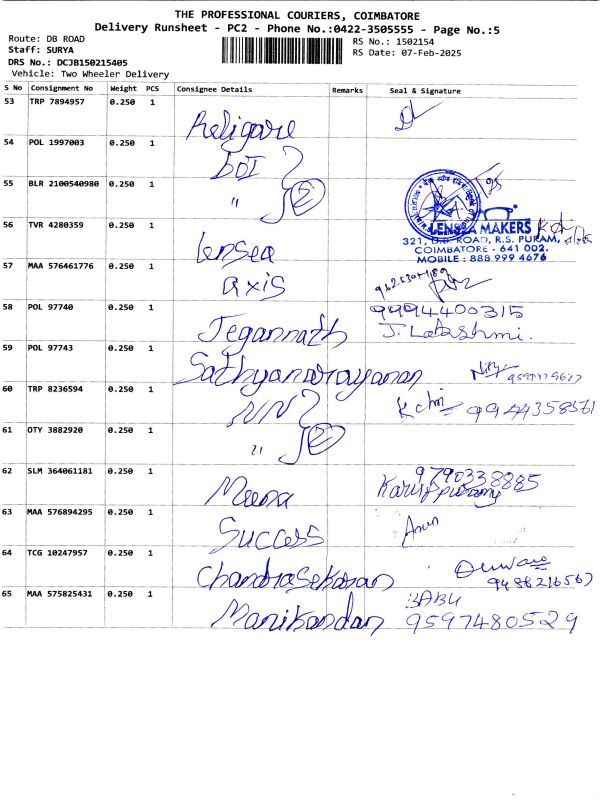 THE PROFESSIONAL COURIERS, COIMBATORE
Delivery Runsheet - PC2 - Phone No.:0422-3505555 - Page No.:5
Route: DB ROAD
Staff: SURYA
DRS No.: DCJB150215405
Vehicle: Two Wheeler Delivery
RS No.: 1502154
RS Date: 07-Feb-2025
S No Consignment No Weight PCS Consignee Details Remarks Seal & Signature
53 TRP 7894957 0.250 1 Religare
54 POL 1997003 0.250 1 DOI
55 BLR 2100540980 0.250 1 " 2
LENSEA MAKERS
321, D.B. ROAD, R.S. PURAM,
COIMBATORE - 641 002.
MOBILE : 888 999 4676
56 TVR 4280359 0.250 1 Lensea
57 MAA 576461776 0.250 1 axis
58 POL 97740 0.250 1 Jegannath 9994400315
J. Lakshmi.
59 POL 97743 0.250 1 Sathyanarayanan
60 TRP 8236594 0.250 1 NN 9944358561
61 OTY 3882920 0.250 1 " 2
62 SLM 364061181 0.250 1 Meena 9790338885
63 MAA 576894295 0.250 1 Success Arun
64 TCG 10247957 0.250 1 Chandrasekaran
65 MAA 575825431 0.250 1 Manikandan BABU
9597480529